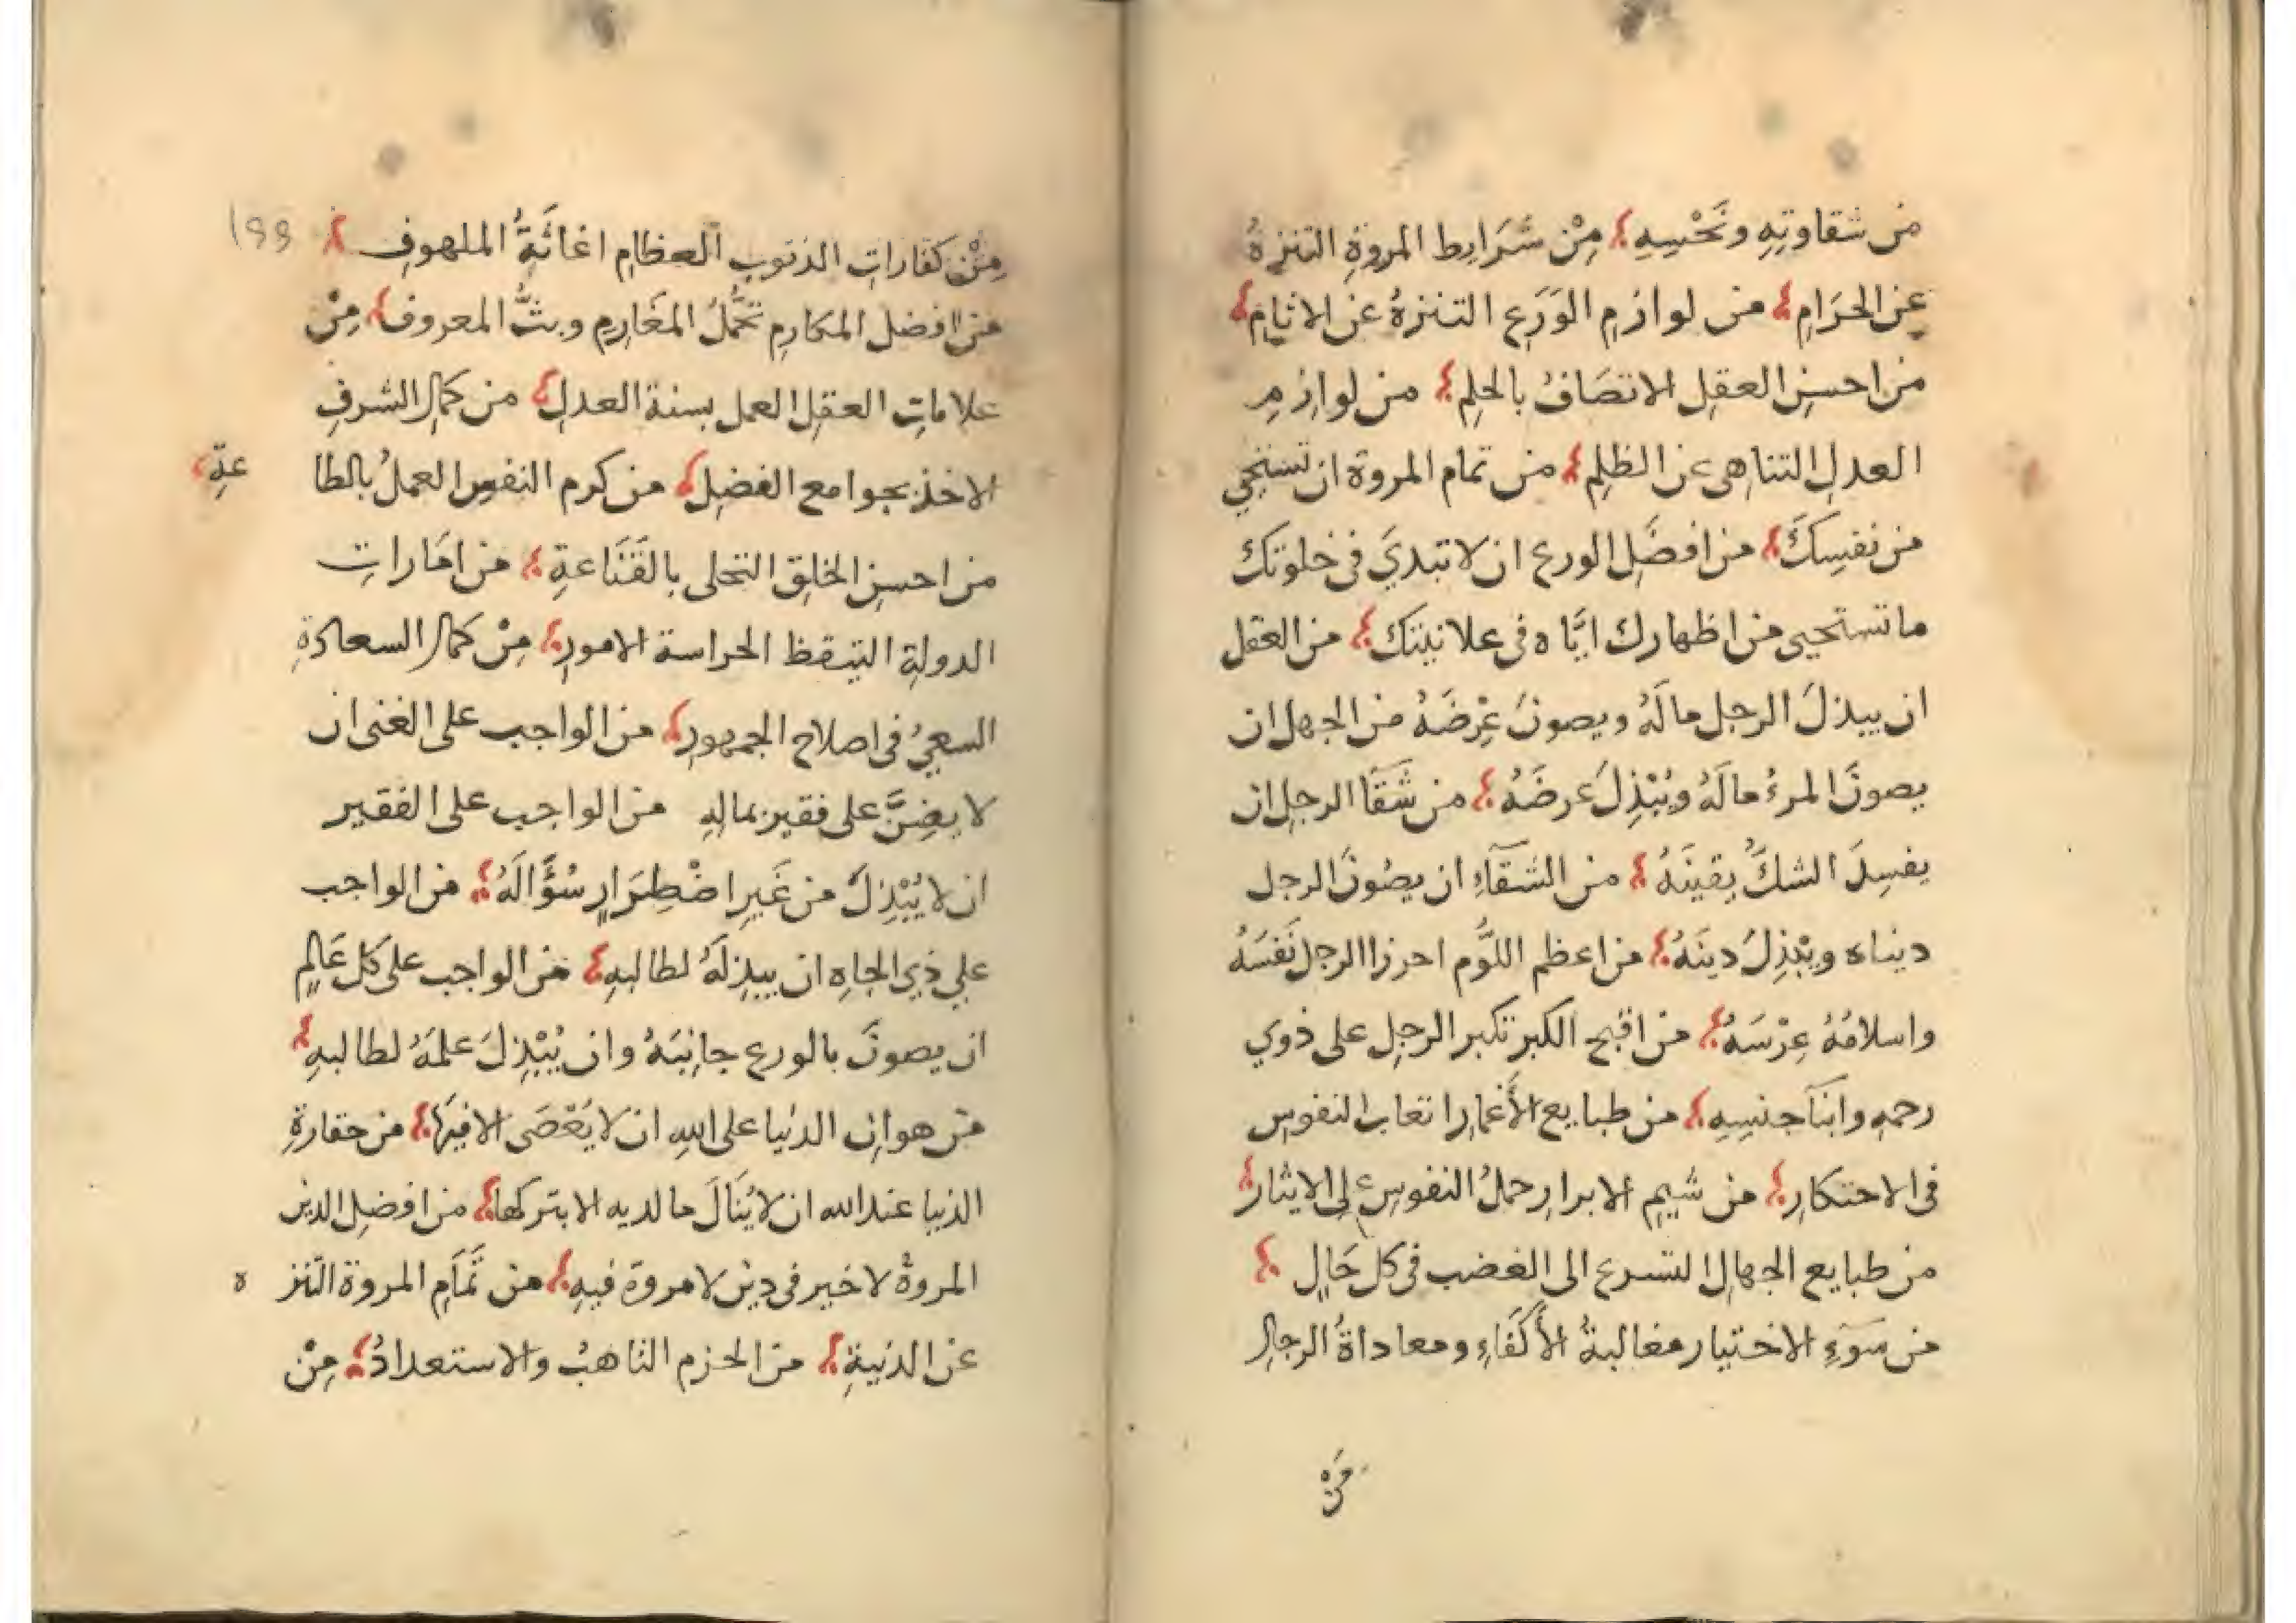 من شقاوتِهِ ونَحْسِهِ من شَرَايط المروةِ التنزهُ
عن الحرَامِ من لوازمِ الوَرَعِ التنزهُ عن الاثامِ
من احسنِ العقلِ الاتصَافُ بالحلمِ من لوازمِ
العدلِ التناهى عن الظلمِ من تمام المروة ان تستحيي
من نفسِكَ من افضَلِ الورع ان لا تبديَ فى خلوتك
ما تستحيى من اظهارك ايَّاه فى علانيتك من العقل
ان يبذلَ الرجل مالَهُ ويصونَ عِرْضَهُ من الجهل ان
يصونَ المرءُ مالَهُ ويُبْذِلَ عرضَهُ من شَقَا الرجل ان
يفسِدَ الشكُّ يقينَهُ من الشقآءِ ان يصُونَ الرجل
دنياه ويبْذِلَ دينَهُ من اعظم اللَّوم احرزا الرجل نَفَسَهُ
واسلامُهُ عِرْسَهُ من اقبح الكبر تكبر الرجل على ذوي
رحمهِ وابنَآجنسِهِ من طبايع الأَغمارِ اتعاب النفوس
فى الاحتكارِ من شيمِ الابرارِ حملُ النفوس على الايثارِ
من طبايع الجهالِ التسرع الى الغضب فى كل حَالٍ
من سَوَءِ الاختيار مغالبةُ الأَكَفَاءِ ومعاداةُ الرجال
مِنْ
١٩٩
مِنْ كفاراتِ الذنوبِ العظامِ اغاثَةُ الملهوفِ
من افضل المكارمِ تَحَمُّلُ المغَارِمِ وبثُّ المعروف مِنْ
علاماتِ العقلِ العمل بسنة العدلِ من كمالِ الشرفِ
الاخذ بجوامع الفضلِ من كرم النفس العملُ بالطا
عةِ
من احسنِ الخلقِ التحلى بالقَنَاعةِ من امَاراتِ
الدولةِ التيقظ الحراسة الامورِ مِنْ كمال السعادةِ
السعيُ فى اصلاح الجمهورِ من الواجب على الغنى ان
لا يضِنَّ على فقيرٍ بمالهِ من الواجب على الفقير
ان لا يُبْذِلَ من غَيرِ اضْطِرَارٍ سُؤَالَهُ من الواجب
علي ذي الجاهِ ان يبذلَهُ لطالبهِ من الواجب على كل عَالمٍ
ان يصونَ بالورع جانبَهُ وان يُبْذِلَ علمَهُ لطالبهِ
من هوانِ الدنيا على اللهِ ان لا يُعْصَى الا فيهَا من حقارةِ
الدنيا عند الله ان لا يُنَالَ ما لديه الا بتركها من افضلِ الدين
المروةُ لا خير فى دين لا مروة فيهِ من تَمَامِ المروة التنز
ه
عن الدنيةِ من الحزم التاهبُ والاستعدادُ مِنْ